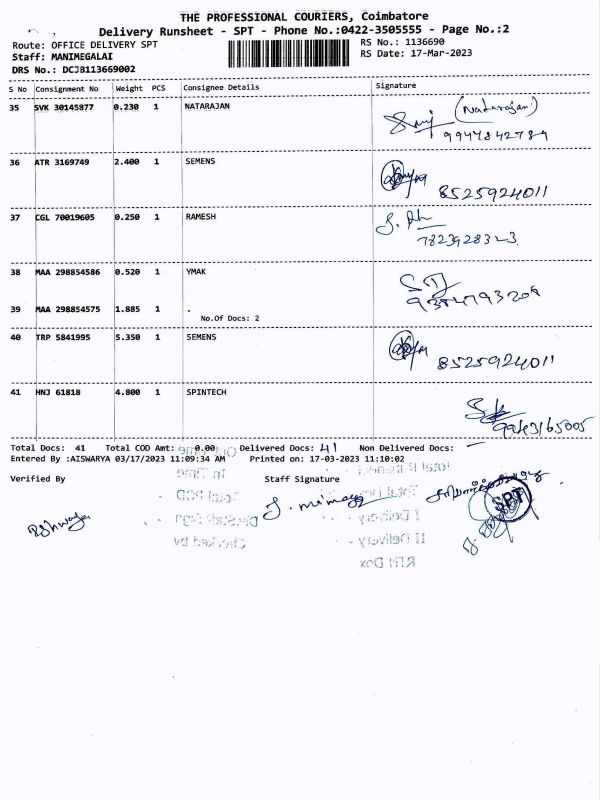 THE PROFESSIONAL COURIERS, Coimbatore
Delivery Runsheet - SPT - Phone No.:0422-3505555 - Page No.:2
Route: OFFICE DELIVERY SPT
RS No.: 1136690
Staff: MANIMEGALAI
RS Date: 17-Mar-2023
DRS No.: DCJB113669002
S No Consignment No Weight PCS Consignee Details Signature
35 SVK 30145877 0.230 1 NATARAJAN
(Natarajan)
9947842789
36 ATR 3169749 2.400 1 SEMENS
8525924011
37 CGL 70019605 0.250 1 RAMESH
7823928323
38 MAA 298854586 0.520 1 YMAK
9384793209
39 MAA 298854575 1.885 1 .
No.Of Docs: 2
40 TRP 5841995 5.350 1 SEMENS
8525924011
41 HNJ 61818 4.800 1 SPINTECH
9943165005
Total Docs: 41 Total COD Amt: 0.00 Delivered Docs: 41 Non Delivered Docs: —
Entered By :AISWARYA 03/17/2023 11:09:34 AM Printed on: 17-03-2023 11:10:02
Verified By Staff Signature
SPT